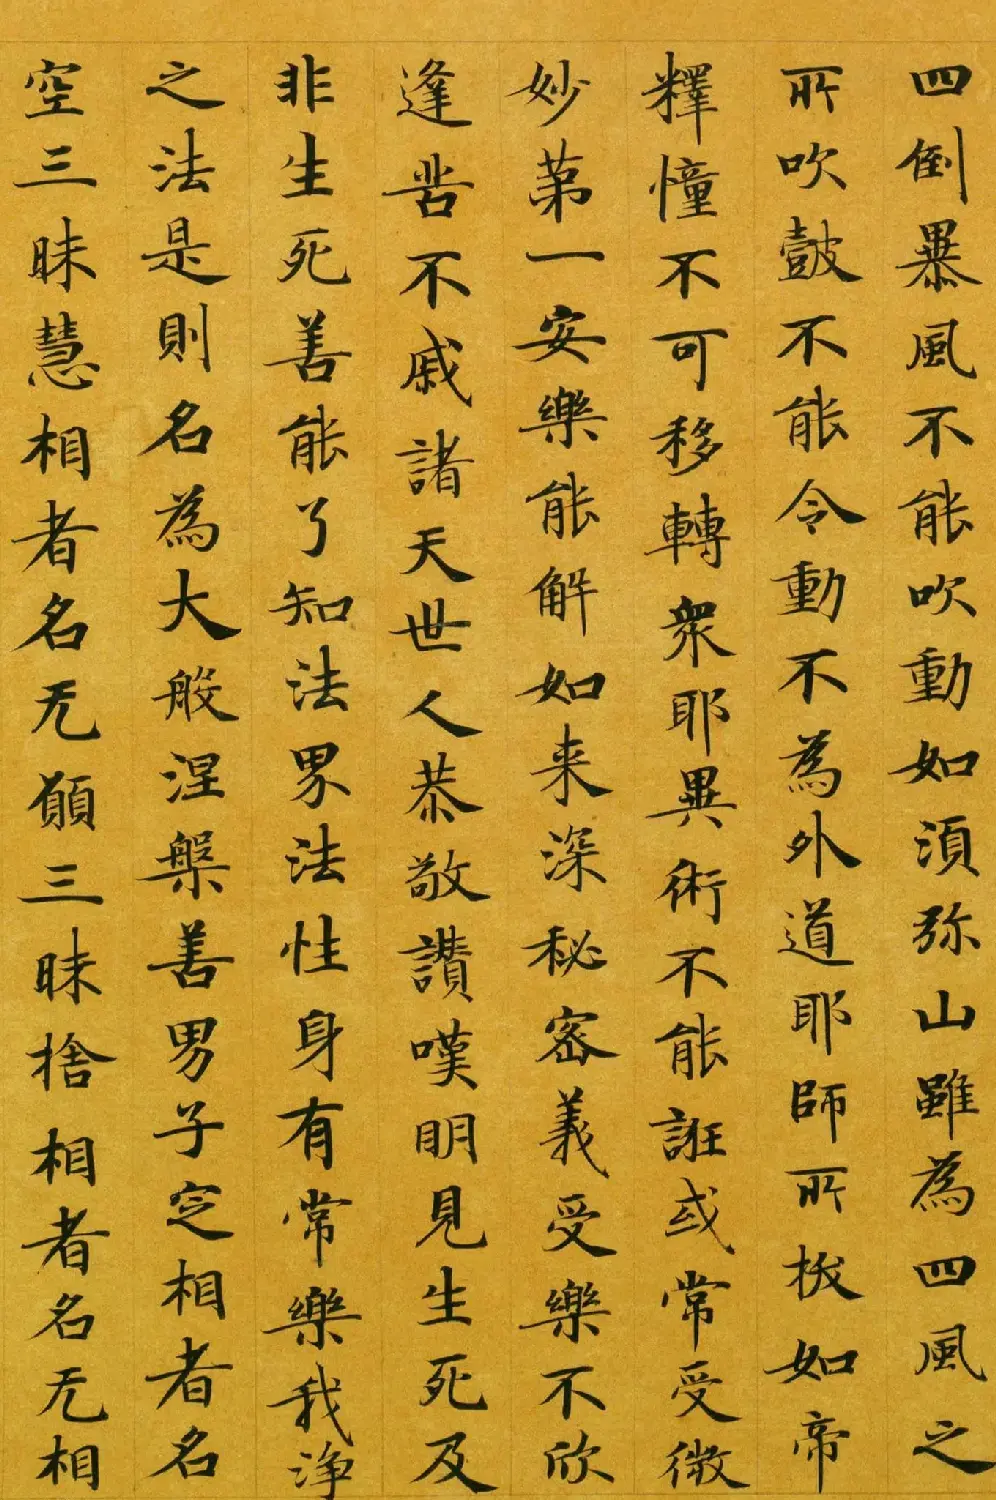 四倒暴風不能吹動如須弥山雖為四風之
所吹鼓不能令動不為外道耶師所拔如帝
釋憧不可移轉衆耶異術不能誑或常受微
妙第一安樂能解如来深秘密義受樂不欣
逢苦不戚諸天世人恭敬讚嘆明見生死及
非生死善能了知法界法性身有常樂我淨
之法是則名為大般涅槃善男子定相者名
空三昧慧相者名无願三昧捨相者名无相